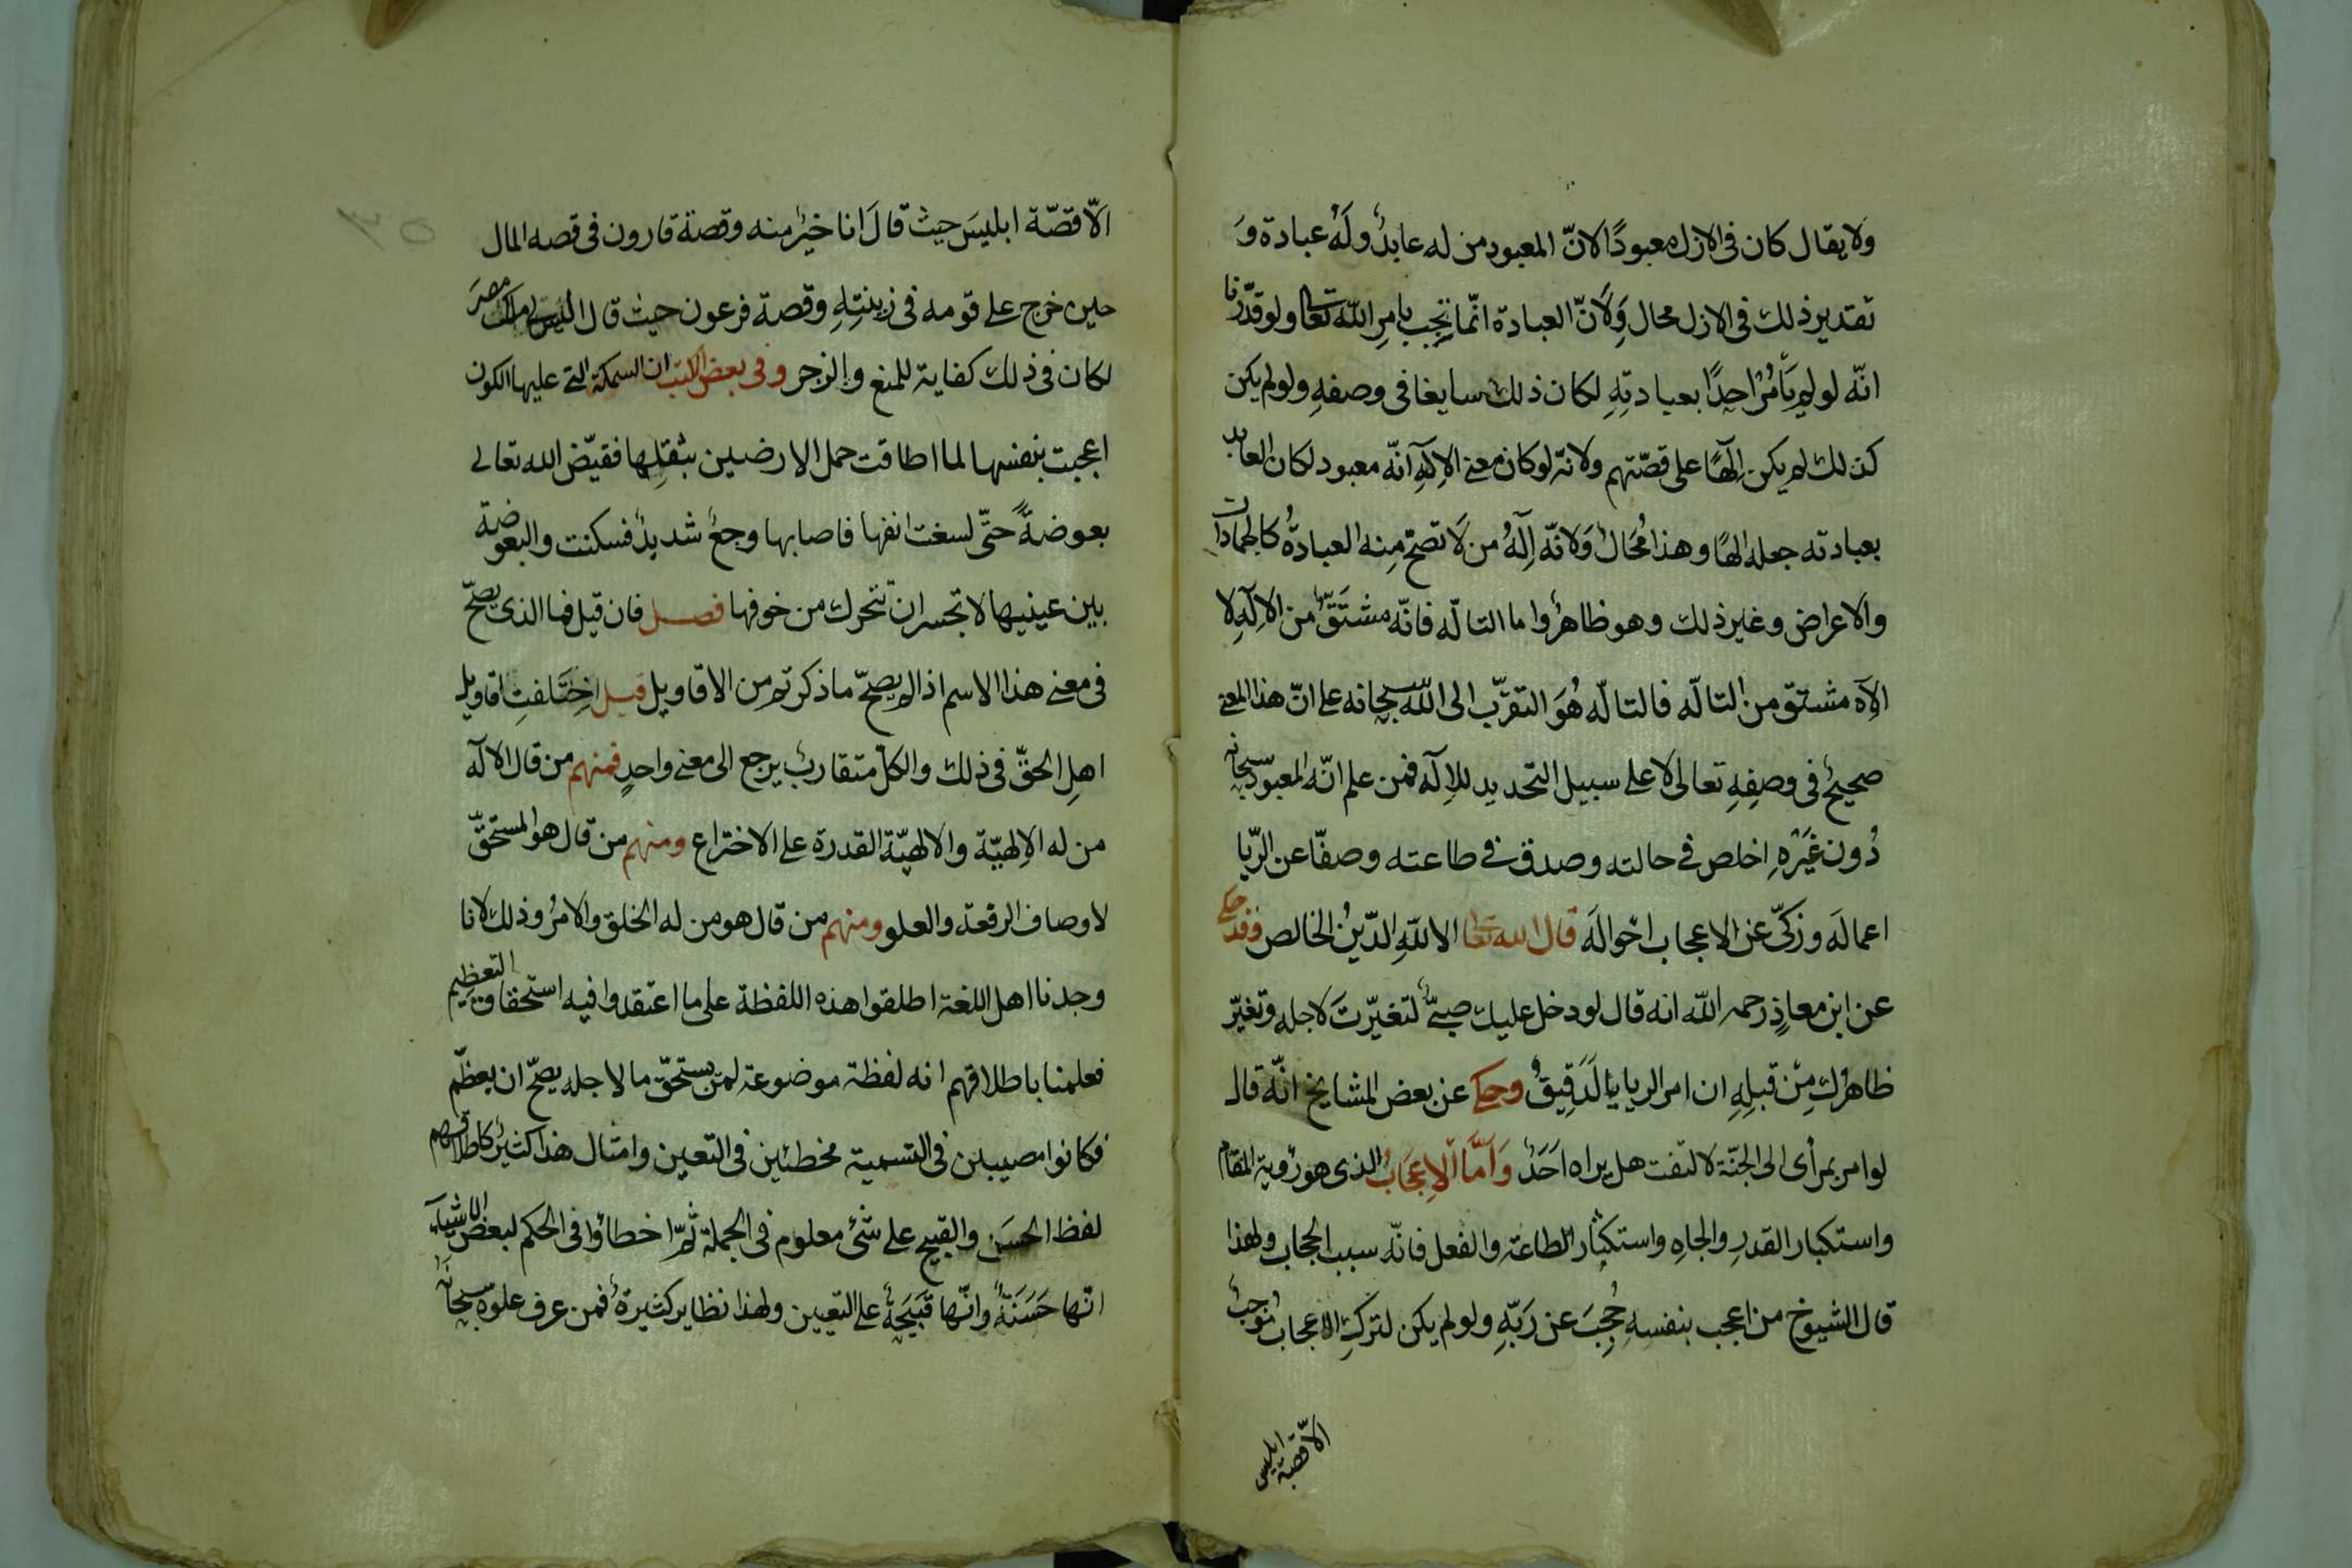 ولا يقال كان فى الازل معبودًا لانّ المعبود من له عابدٌ ولَهُ عبادة وَ
تقدير ذلك فى الازل محال وَلِانّ العبادة انّما تجب بامرِ الله تعا ولو قدّرنا
انّه لو لم يَأمُرْ احدًا بعبادتِهِ لكان ذلك سايغا فى وصفهِ ولو لم يكن
كذلك لم يكن اِلٓهًا على قصّتهم ولانه لو كان معنى الاِلٓهِ انّه معبود لكان العابد
بعبادته جعله الهًا وهذا مُحَالٌ وَلانّه اِلٓهُ من لَا تصحّ مِنه العبادةُ كالجمادات
والاعراض وغير ذلك وهو ظاهرٌ واما التالّه فانّه مشتَقّ من الاِلٓهِ لا
الاِلٓه مشتق من التالّه فالتالّه هُوَ التقرّب الى اللّه سبحانه على انّ هذا المعنى
صحيحٌ فى وصفِهِ تعالى لا على سبيل التحديد للاِلٓه فمن علم انّه المعبود سبحانه
دُون غَيْرهِ اخلص فى حالته وصدق فى طاعته وصفّا عن الرّيا
اعمالَه وزكّى عن الاعجاب احْوالَه قال الله تعا الا للّهِ الدّينُ الخالص فقد حكى
عن ابن معاذٍ رحمه اللّه انه قال لو دخل عليك صبىٌّ لتغيّرتَ لاجله وتغيّر
ظاهرُك مِنْ قبلِهِ ان امر الريا يا لَدَقِيقٌ وحكى عن بعض المشايخ انّه قال
لو امر بمرأى الى الجنّة لالتفت هل يراه احَدٌ وَامَّا الاِعجَابُ الذى هو رُوية المقام
واستكبار القدرِ والجاهِ واستكثار الطاعة والفعل فانّه سبب الحجاب ولهذا
قال الشيوخ من اعجب بنفسهِ حُجِبَ عن رَبّهِ ولو لم يكن لتركِ الاعجاب مُوجبٌ
الّا قصّة ابليس
الّا قصّة ابليسَ حيث قالَ انا خيرٌ منه وقصة قارون فى قصه المال
حين خرج على قومه فى زينتِهِ وقصة فرعون حيث قال اليس لى ملك مصرَ
لكان فى ذلك كفاية للمنع والزجر وفى بعض الكتب ان السمكة التى عليها الكون
اعجبت بنفسها لما اطاقت حمل الارضين بثقلِها فقيّض الله تعالى
بعوضةً حتّى لسغت انفها فاصابها وجعٌ شديدٌ فسكنت والبعوضة
بين عينيها لا تجسر ان تتحرك من خوفها فصل فان قيل فما الذى يصحّ
فى معنى هذا الاسم اذا لم يصحّ ما ذكرتم من الاقاويل قيل اخِتَلفتِ اقاويل
اهلِ الحقّ فى ذلك والكلّ متقاربٌ يرجع الى معنى واحدٍ فمنهم من قال الالٓه
من له الاِلهيّة والالهيّة القدرة على الاختراع ومنهم من قال هو المستحقّ
لاوصاف الرفعة والعلو ومنهم من قال هو من له الخلق والامرُ وذلك لانا
وجدنا اهل اللغة اطلقوا هذه اللفظة على ما اعتقدوا فيه استحقاق التعظيم
فعلمنا باطلاقهم انه لفظة موضوعة لمن يستحقّ ما لاجله يصحّ ان يعظّم
فكانوا مصيبين فى التسمية مخطئين فى التعيين وامثال هذا كثيرٌ كاطلاقهم
لفظ الحسَن والقبيح على شئ معلوم فى الجملة ثمّ اخطاؤا فى الحكم لبعض الاشياء
انّها حَسَنَةٌ وانّها قَبَيحَةٌ على التعيين ولهذا نظاير كثيرةٌ فمن عرف علوه سبحانه